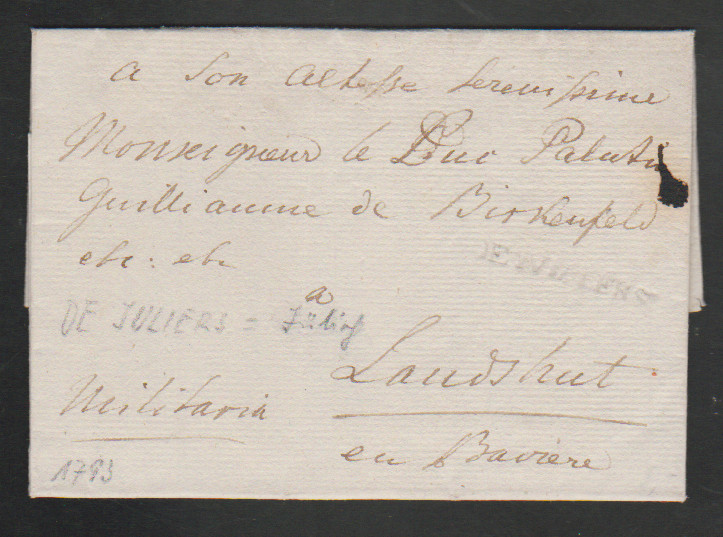 a Son Altesse Serenissime
Monseigneur le Duc Palatin
Guilliaume de Birkenfeld
etc: etc
a
DE JULIERS = Jülich
Landshut
Militaria
en Baviere
1793